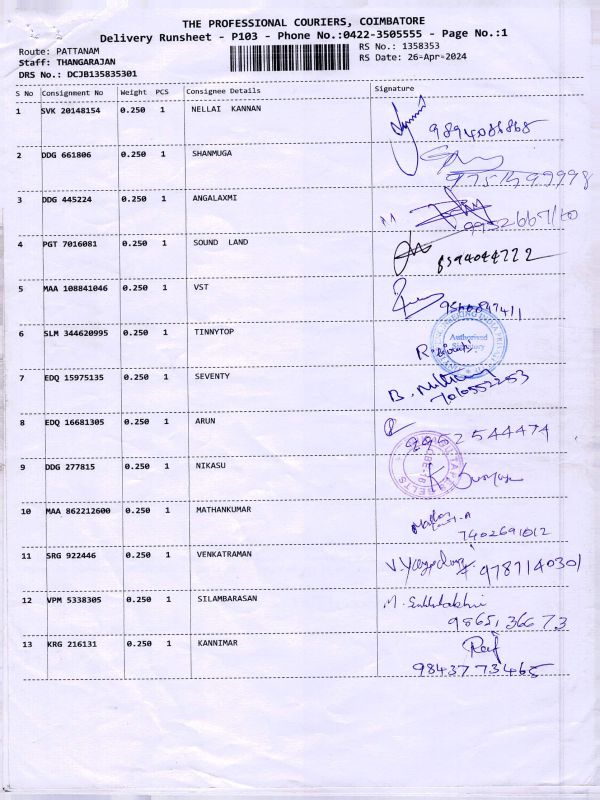 THE PROFESSIONAL COURIERS, COIMBATORE
Delivery Runsheet - P103 - Phone No.:0422-3505555 - Page No.:1
Route: PATTANAM RS No.: 1358353
Staff: THANGARAJAN RS Date: 26-Apr-2024
DRS No.: DCJB135835301
S No Consignment No Weight PCS Consignee Details Signature
1 SVK 20148154 0.250 1 NELLAI KANNAN
2 DDG 661806 0.250 1 SHANMUGA
3 DDG 445224 0.250 1 ANGALAXMI
4 PGT 7016081 0.250 1 SOUND LAND 8344044222
5 MAA 108841046 0.250 1 VST
6 SLM 344620995 0.250 1 TINNYTOP Authorised
7 EDQ 15975135 0.250 1 SEVENTY
8 EDQ 16681305 0.250 1 ARUN 9952544474
9 DDG 277815 0.250 1 NIKASU
10 MAA 862212600 0.250 1 MATHANKUMAR 7402691012
11 SRG 922446 0.250 1 VENKATRAMAN 9787140301
12 VPM 5338305 0.250 1 SILAMBARASAN 9865136673
13 KRG 216131 0.250 1 KANNIMAR 9843773465